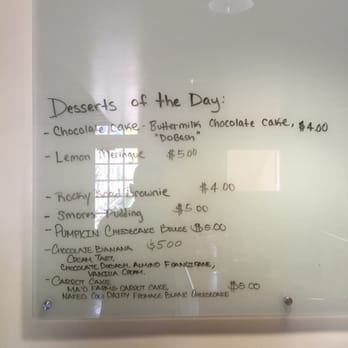 Desserts of the Day:
- Chocolate Cake - Buttermilk Chocolate Cake, $4.00
"DoBash"
- Lemon Meringue $5.00
- Rocky Road Brownie $4.00
- Smores Pudding $5.00
- Pumpkin Cheesecake $5.00
- Chocolate Banana $5.00
Cream Tart,
Chocolate Dobash, Almond Frangipane,
Vanilla Cream.
- Carrot Cake $5.00
Ma'o Farms Carrot Cake,
Naked Cow Dairy Fromage Blanc Cheesecake